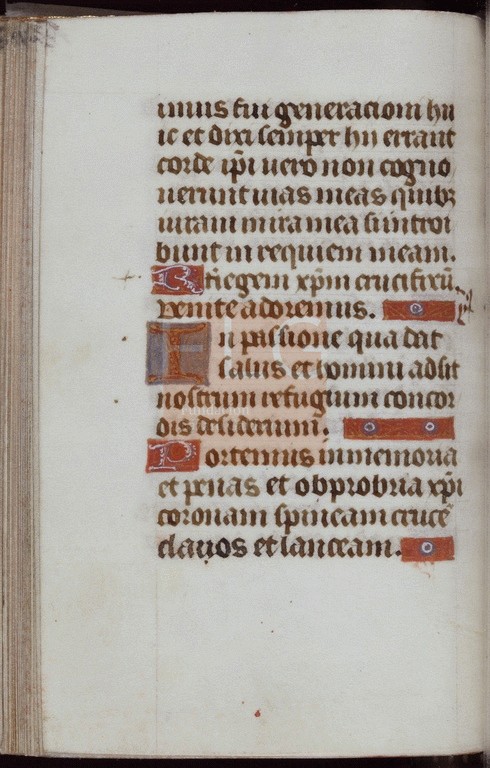 imus fui generacioni hu
ic et dixi semper hii errant
corde ip̄i vero non cogno
uerunt uias meas quibꝫ
iuraui in ira mea si introi
bunt in requiem meam.
Regem xp̄m crucifixū
venite adoremus.
In passione qua dat
salus et homini adsit
nostrum refugium concor
dis desiderium.
Portemus in memoria
et penas et obprobria xp̄i
coronam spineam crucē
clauos et lanceam.